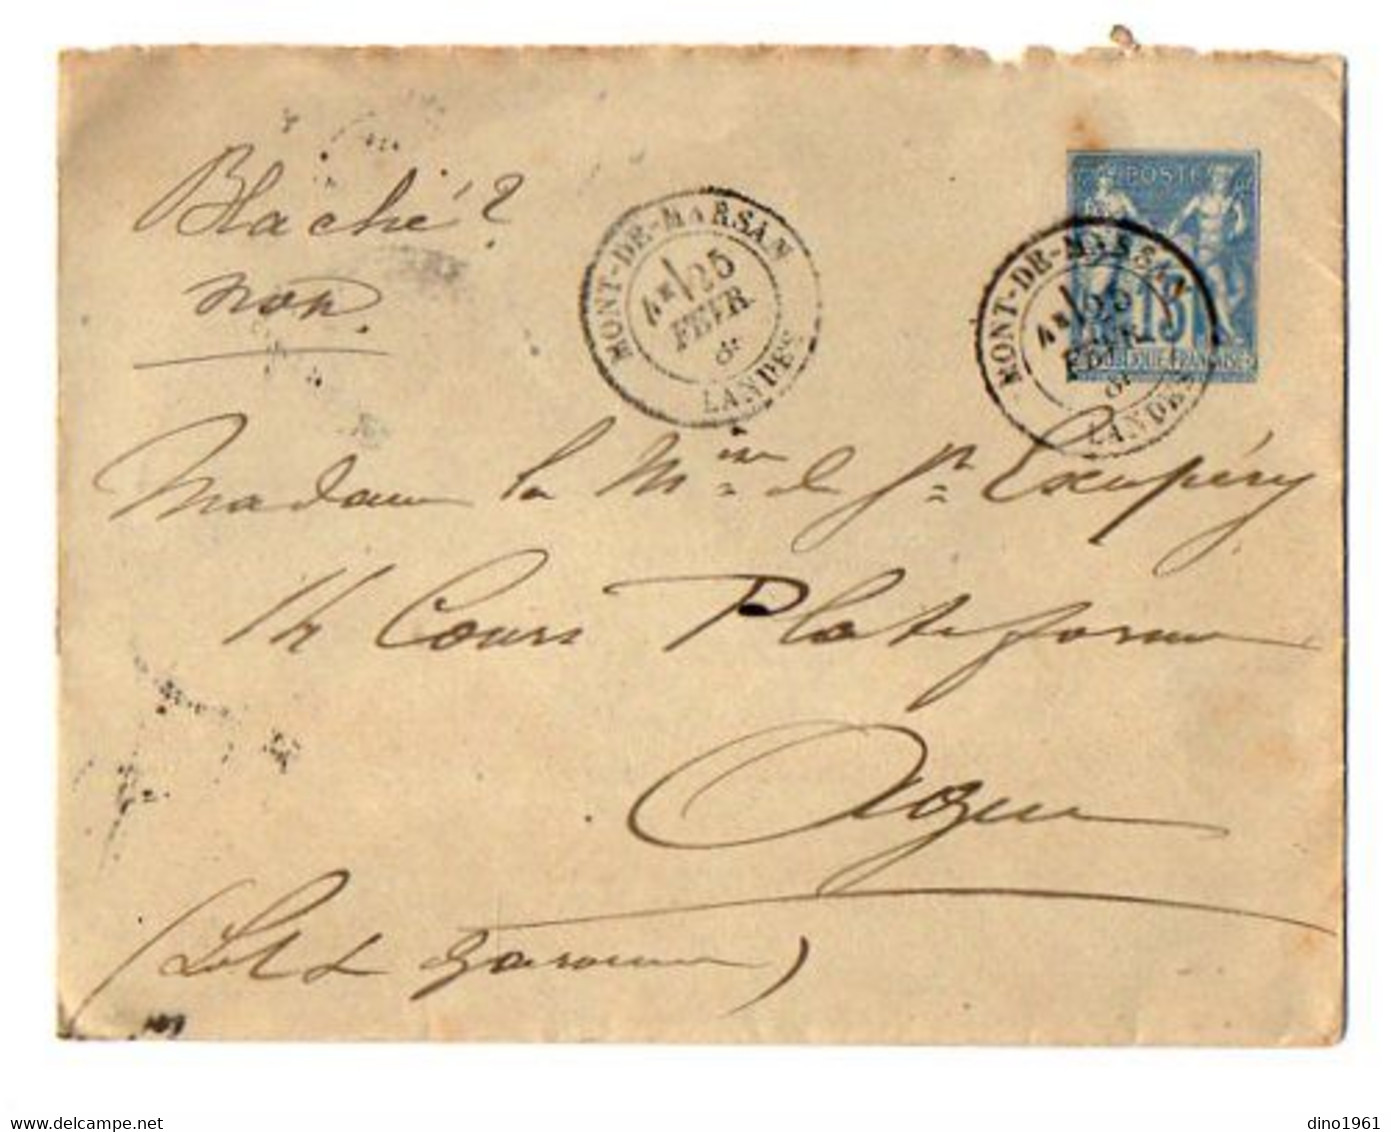 Blaché ?
non.
MONT-DE-MARSAN
25
FEVR
LANDES
POSTE
15
RÉPUBLIQUE FRANÇAISE
MONT-DE-MARSAN
25
FEVR
LANDES
Madame la Mise de St Exupéry
14 Cours Plateforme
Agen
(Lot & Garonne)
dino1961